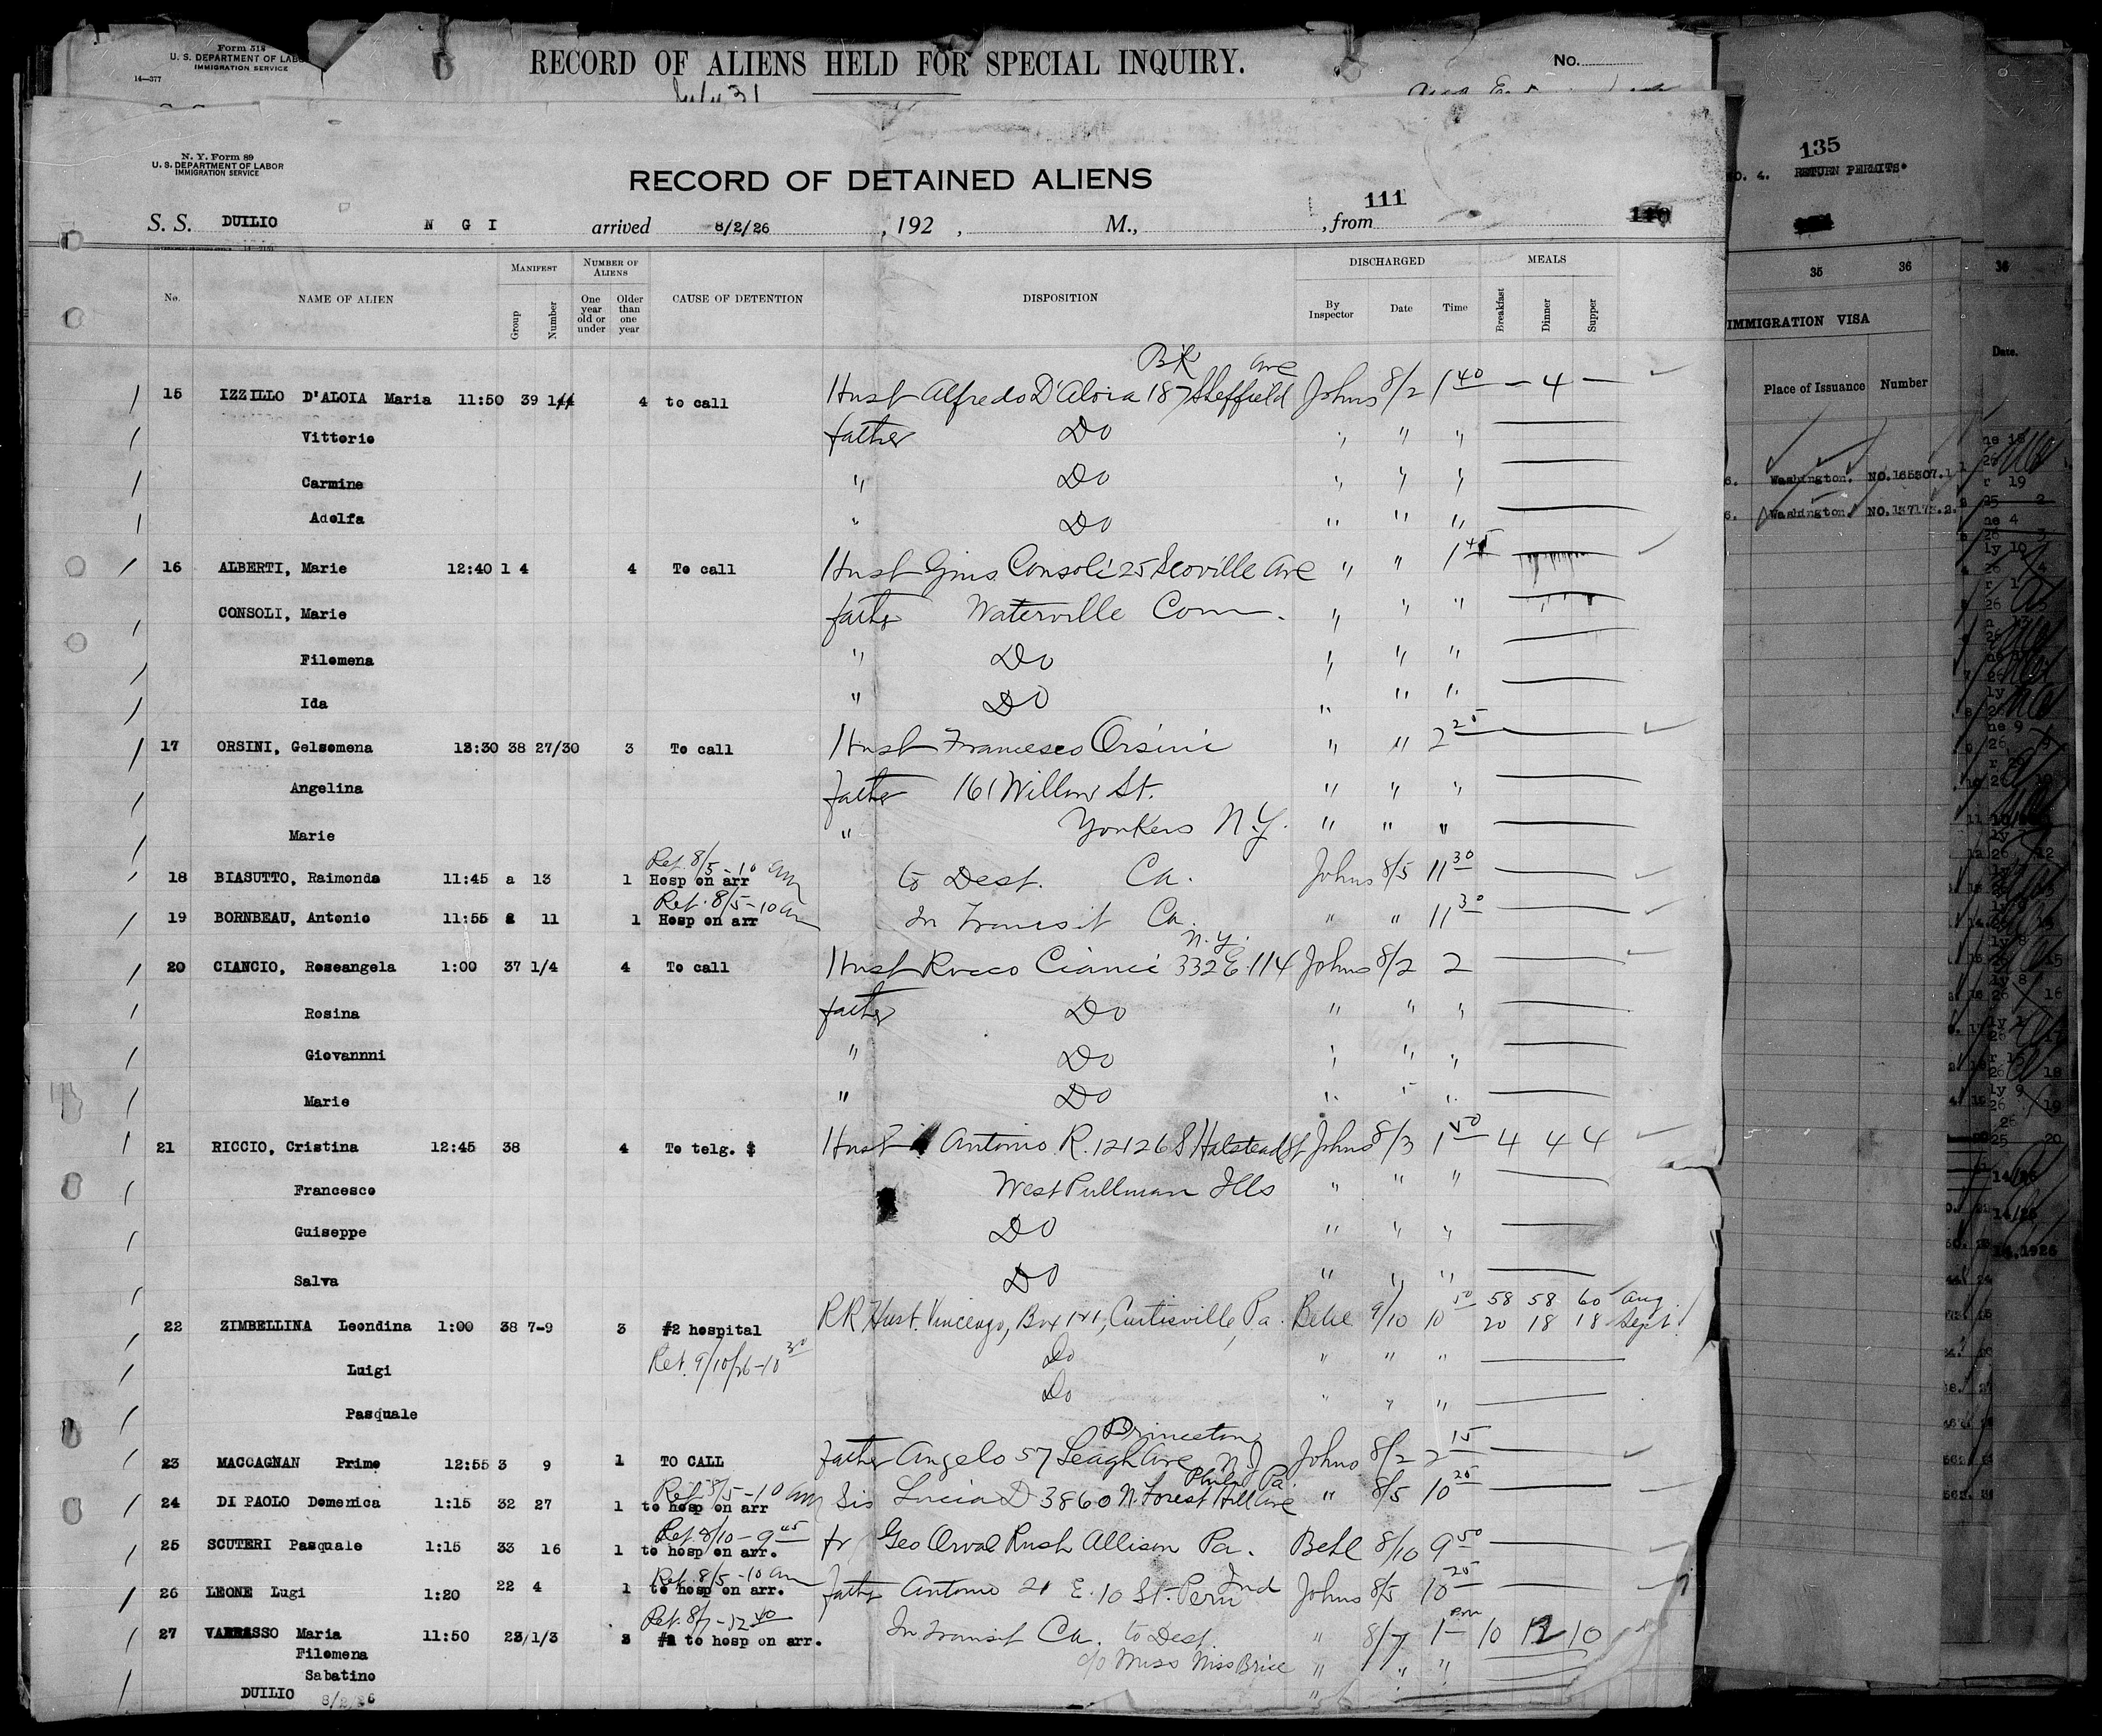 Form 518
U. S. DEPARTMENT OF LABO
IMMIGRATION SERVICE
14—377
RECORD OF ALIENS HELD FOR SPECIAL INQUIRY.
No.
N. Y. Form 89
U. S. DEPARTMENT OF LABOR
IMMIGRATION SERVICE
RECORD OF DETAINED ALIENS
111
S. S. DUILIO N G I arrived 8/2/26, 192 , M., , from 110
No. NAME OF ALIEN MANIFEST Group Number NUMBER OF ALIENS One year old or under Older than one year CAUSE OF DETENTION DISPOSITION DISCHARGED By Inspector Date Time MEALS Breakfast Dinner Supper
BK Ave
15 IZZILLO D'ALOIA Maria 11:50 39 4 to call Husb Alfredo D'Aloia 187 Sheffield Johns 8/2 1 40 — 4 —
Vittorio father Do " " "
Carmine " Do " " "
Adolfa " Do " " "
16 ALBERTI, Marie 12:40 1 4 4 To call Husb Gius. Consoli 25 Scoville Ave " " 1 45
CONSOLI, Marie father Waterville Conn. " " "
Filomena " Do " " "
Ida " Do " " "
17 ORSINI, Gelsomena 38 27/30 3 To call Husb Francesco Orsini " " 2 25
Angelina father 161 Willow St. " " "
Marie " Yonkers N.Y. " " "
Ret. 8/5 - 10 am
18 BIASUTTO, Raimondo 11:45 a 13 1 Hosp on arr to Dest. Ca. Johns 8/5 11 30
Ret. 8/5 - 10 am
19 BORNBEAU, Antonio 11:55 11 1 Hosp on arr In Transit Ca. " " 11 30
N.Y.
20 CIANCIO, Roseangela 1:00 37 1/4 4 To call Husb Rocco Cianci 332 E. 114 Johns 8/2 2
Rosina father Do " " "
Giovannni " Do " " "
Marie " Do " " "
21 RICCIO, Cristina 12:45 38 4 To telg. $ Husb Antonio R. 12126 S. Halstead St Johns 8/3 1 50 4 4 4
Francesco West Pullman Ills " " "
Guiseppe Do " " "
Salva Do " " "
58 58 60 Aug
22 ZIMBELLINA Leondina 1:00 38 7-9 3 #2 hospital RR Husb. Vincenzo, Box 141, Curtisville, Pa. 9/10 10 50 20 18 18 Sept
Ret. 9/10/26 - 10 30
Luigi Do " " "
Pasquale Do " " "
Princeton
23 MACCAGNAN Primo 12:55 3 9 1 TO CALL father Angelo 57 Ave N.J. Johns 8/2 2 15
Ret. 8/5 - 10 am Phila Pa.
24 DI PAOLO Domenica 1:15 32 27 1 to hosp on arr Sis Lucia D 3860 N. Forest Hill Ave " 8/5 10 25
Ret. 8/10 - 9 45
25 SCUTERI Pasquale 1:15 33 16 1 to hosp on arr. fr Geo Orval Rush Allison Pa. 8/10 9 50
Ret. 8/5 - 10 am
26 LEONE Lugi 1:20 22 4 1 to hosp on arr. father Antonio 21 E. 10 St. Peru Ind Johns 8/5 10 25
Ret. 8/7 - 12 40
27 Maria 11:50 23/1/3 3 to hosp on arr. In Transit Ca. to Dest. " 8/7 1 pm 10 12 10
Filomena c/o Miss Brice " " "
Sabatino
DUILIO 8/2/26
135
NO. 4. RETURN PERMITS.
35 36
IMMIGRATION VISA
Place of Issuance Number
Washington. NO.165307.1
Washington. NO.137173.2.
36
Date.